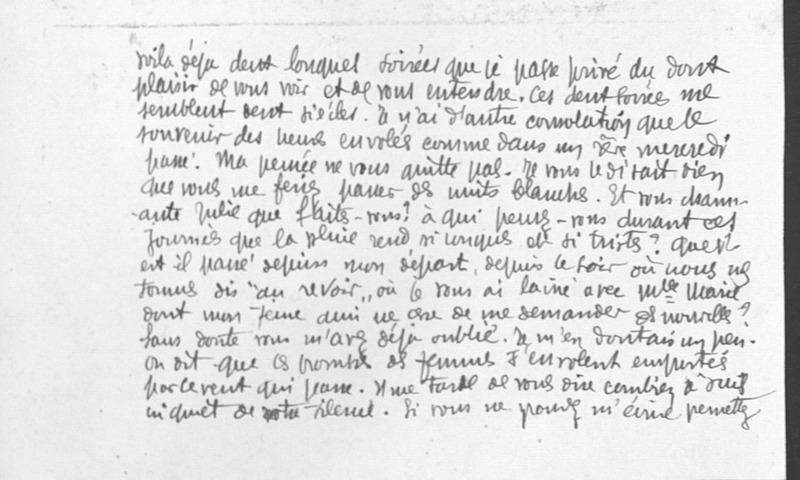 voila déja deux longues soirées que je passe privé du doux
plaisir de vous voir et de vous entendre. Ces deux soirées me
semblent deux siècles. Je n'ai d'autre consolation que le
souvenir des heures envolées comme dans un rêve mercredi
passé. Ma pensée ne vous quitte pas. Je vous le disait bien
que vous me feriez passer des nuits blanches. Et vous charm-
-ante Julie que faites-vous? à qui pensez-vous durant ces
journées que la pluie rend si longues et si tristes? Que s'
est il passé depuis mon départ, depuis le soir où nous nous
sommes dis "au revoir,, où je vous ai laissé avec Mlle Marie
dont mon jeune ami ne cesse de me demander des nouvelles?
Sans doute vous m'avez déja oublié. Je m'en doutais un peu.
On dit que les promesses des femmes s'envolent emportées
par le vent qui passe. Il me tarde de vous dire combien je suis
inquiet de votre silence. Si vous ne pouvez m'écrire permettez